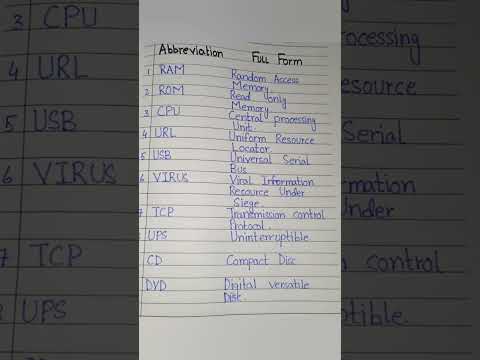 Abbreviation Full Form
1 RAM Random Access
Memory
2 ROM Read only
Memory
3 CPU Central processing
Unit.
4 URL Uniform Resource
Locator
5 USB Universal Serial
Bus
6 VIRUS Viral Information
Resource Under
Siege
7 TCP Transmission control
Protocol.
UPS Uninterruptible.
CD Compact Disc
DVD Digital versatile
Disk.
3 CPU
4 URL
5 USB
6 VIRUS
7 TCP
UPS
ocessing
Resource
Serial
mation
Under
control
ptible.